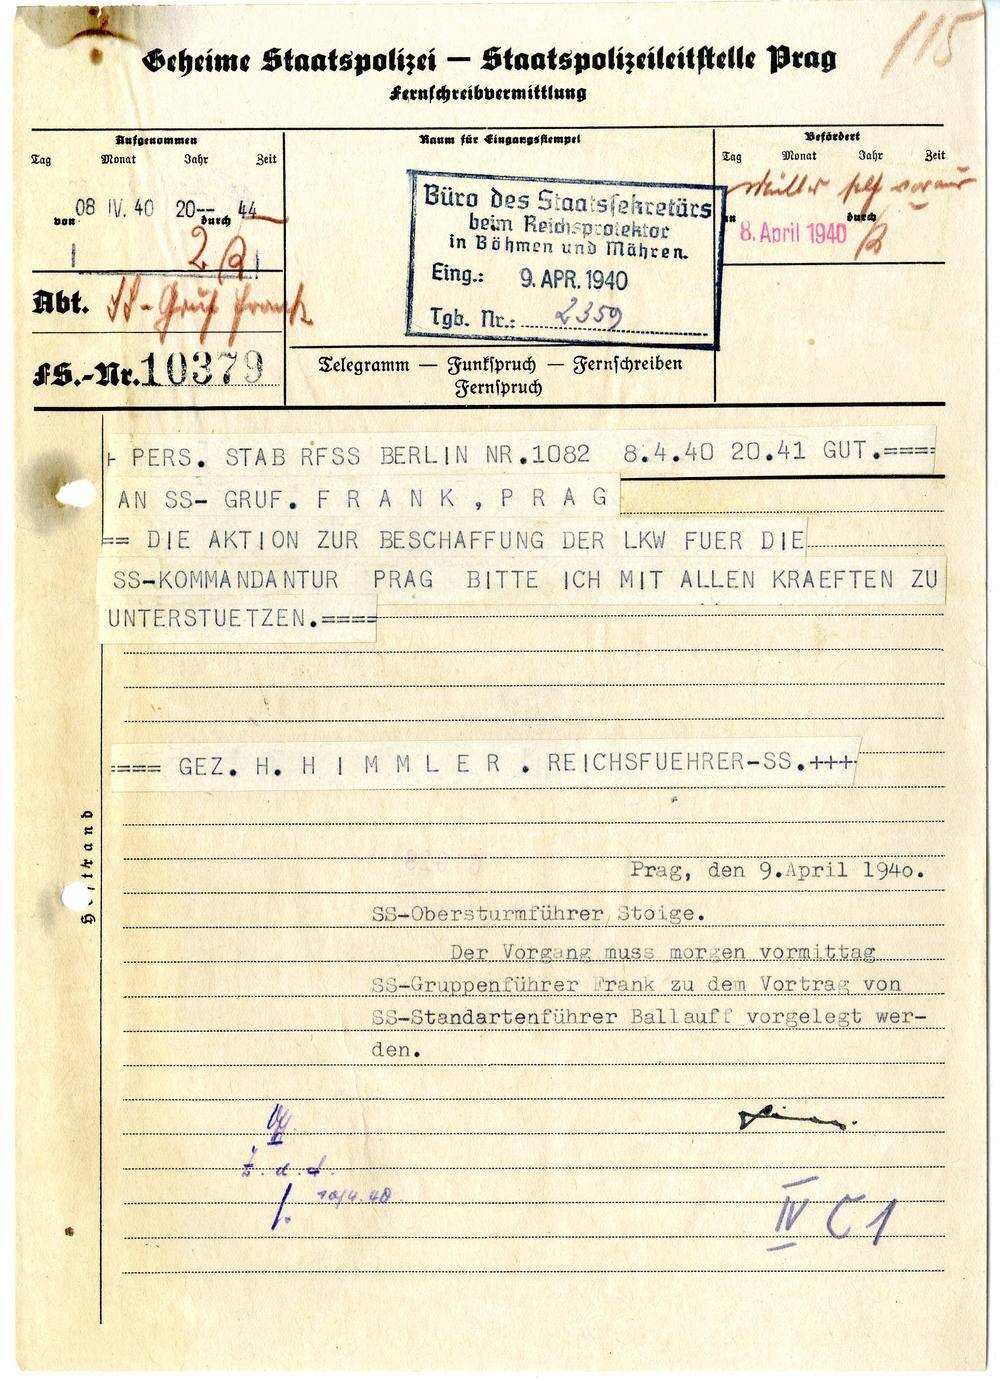 115
Geheime Staatspolizei — Staatspolizeileitstelle Prag
Fernschreibvermittlung
Aufgenommen
Tag Monat Jahr Zeit
08 IV. 40 20-- 44
von durch
Raum für Eingangsstempel
Büro des Staatssekretärs
beim Reichsprotektor
in Böhmen und Mähren.
Eing.: 9. APR. 1940
Tgb. Nr.: 2359
Befördert
Tag Monat Jahr Zeit
durch
8. April 1940
Abt. SS-Gruf Frank
FS.-Nr. 10379
Telegramm — Funkspruch — Fernschreiben
Fernspruch
+ PERS. STAB RFSS BERLIN NR.1082 8.4.40 20.41 GUT.====
AN SS- GRUF. F R A N K , P R A G
== DIE AKTION ZUR BESCHAFFUNG DER LKW FUER DIE
SS-KOMMANDANTUR PRAG BITTE ICH MIT ALLEN KRAEFTEN ZU
UNTERSTUETZEN.====
==== GEZ. H. H I M M L E R . REICHSFUEHRER-SS.+++
Heftrand
Prag, den 9.April 194o.
SS-Obersturmführer Stoige.
Der Vorgang muss morgen vormittag
SS-Gruppenführer Frank zu dem Vortrag von
SS-Standartenführer Ballauff vorgelegt wer-
den.
z. d. A.
10/4. 40
IV C 1